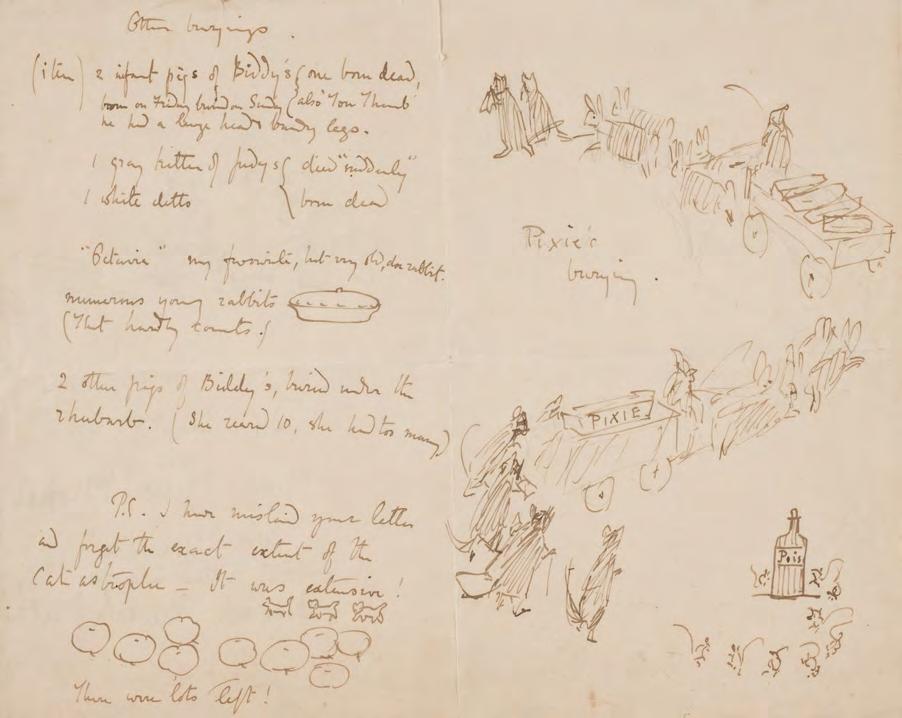 Other buryings.
(item) 2 infant pigs of Biddy's { one born dead,
born on Friday buried on Sunday { also "Tom Thumb"
he had a large head & bandy legs.
1 gray kitten of Judy's { died "suddenly"
1 white ditto { born dead
"Octavia" my favourite, but very old, doe rabbit.
numerous young rabbits
(That hardly counts.)
2 other pigs of Biddy's, buried under the
rhubarb. (She reared 10, she had too many)
P.S. I have mislaid your letter
and forget the exact extent of the
Cat astrophe — It was extensive!
There were lots left!
Pixie's
burying.
PIXIE
Pois